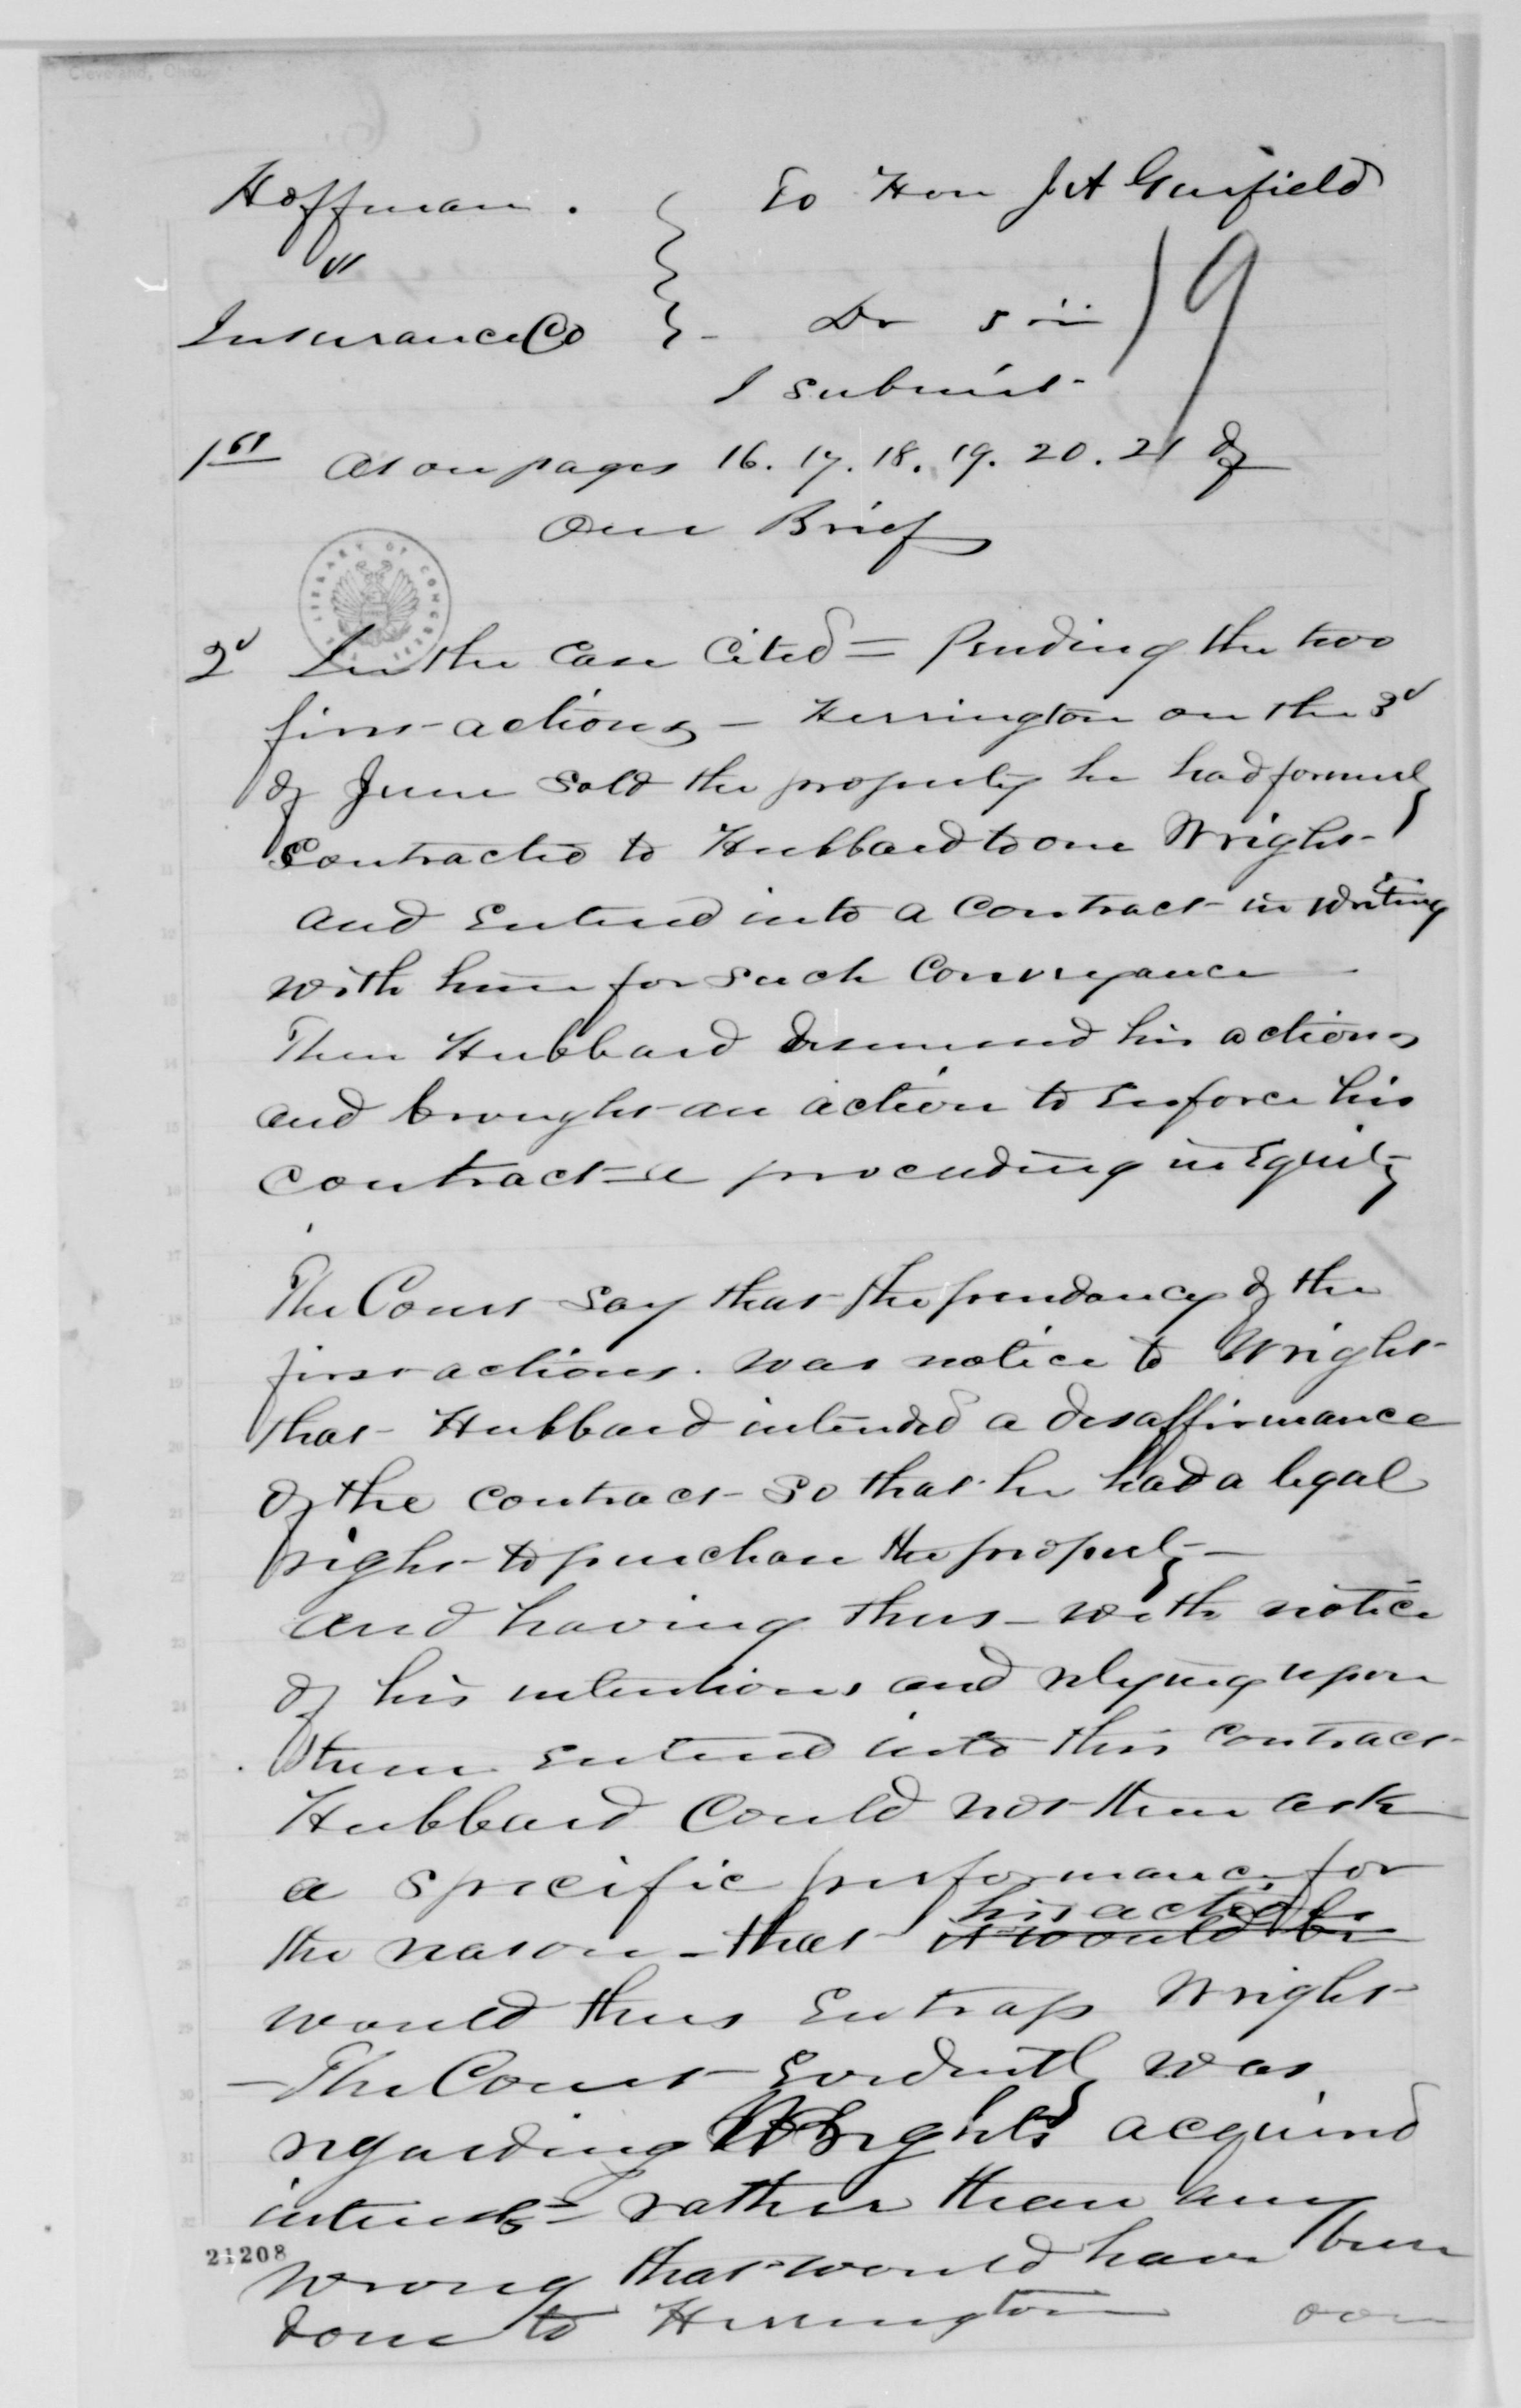 Cleveland, Ohio,
Hoffman . To Hon J A Garfield
vs
Insurance Co Dr sir
19
I submit
1st As on pages 16. 17. 18. 19. 20. 21 of
Our Brief
LIBRARY OF CONGRESS
2d In the Case Cited = Pending the two
first actions - Herrington on the 3d
of June Sold the property he had formerly
Contracted to Hubbard to one Wright
and Entered into a Contract in writing
with him for such Conveyance
Then Hubbard dismissed his actions
and brought an action to Enforce his
contract - a proceeding in Equity
The Court say that the pendancy of the
first actions. was notice to Wright
that Hubbard intended a disaffirmance
of the contract so that he had a legal
right to purchase the property -
and having thus - with notice
of his intentions and relying upon
them Entered into this contract
Hubbard Could not then ask
a specific performance for
the reason - that it would be his action
would thus Entrap Wright
- The Court Evidently was
regarding Wright's acquired
interests - rather than any
wrong that would have been
done to Herrington over
21208